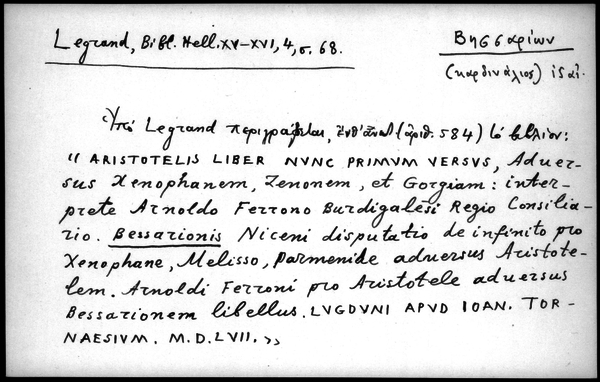 Legrand, Bibl. Hell. XV–XVI, 4, σ. 68.
Βησσαρίων
(καρδινάλιος) ις αἰ.
Ὑπὸ Legrand περιγράφεται, (ἀριθ. 584) τὸ βιβλίον:
« ARISTOTELIS LIBER NVNC PRIMVM VERSVS, Aduer-
sus Xenophanem, Zenonem, et Gorgiam: inter-
prete Arnoldo Ferrono Burdigalesi Regio Consilia-
rio. Bessarionis Niceni disputatio de infinito pro
Xenophane, Melisso, Parmenide aduersus Aristote-
lem. Arnoldi Ferroni pro Aristotele aduersus
Bessarionem libellus. LVGDVNI APVD IOAN. TOR-
NAESIVM. M.D.LVII. »